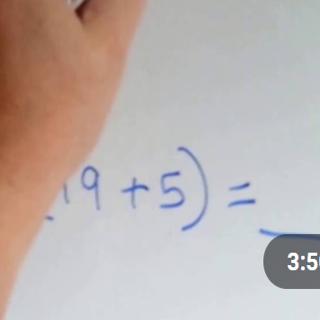 (19 + 5) = __
3:5